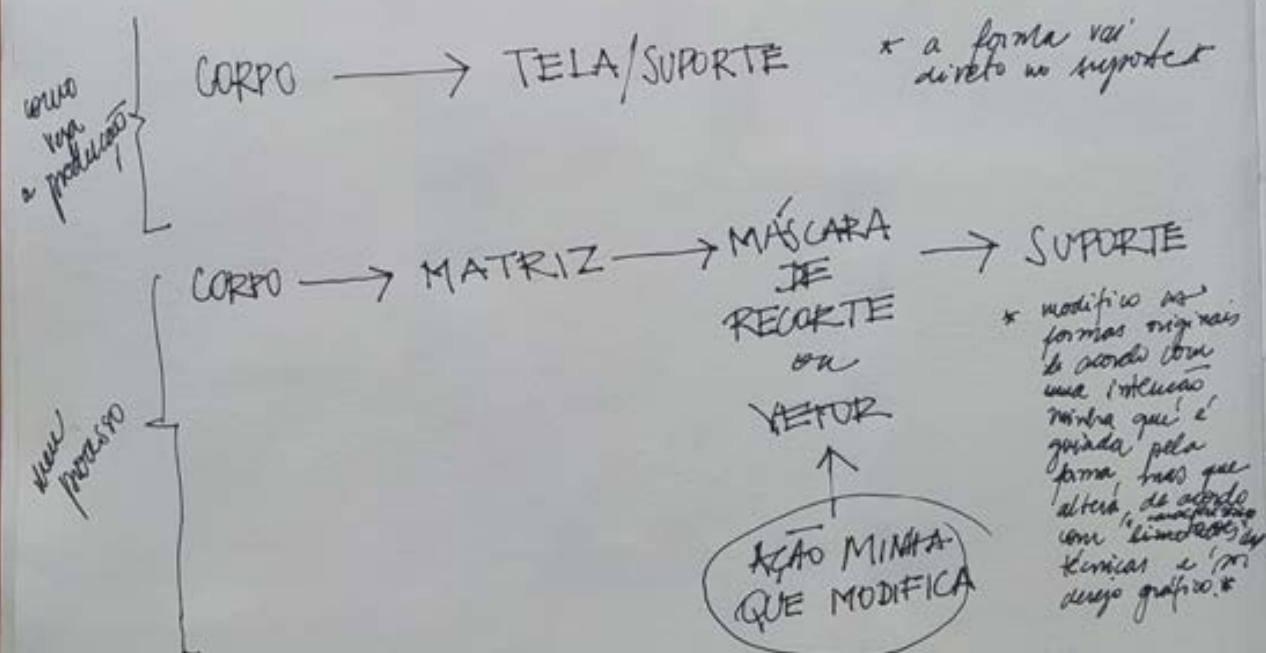 como
vejo
a produção
CORPO → TELA/SUPORTE
* a forma vai
direto no suporte *
meu
processo
CORPO → MATRIZ → MÁSCARA → SUPORTE
DE
RECORTE
ou
VETOR
↑
AÇÃO MINHA
QUE MODIFICA
* modifico as
formas originais
de acordo com
uma intenção
minha que é
guiada pela
forma, mas que
altera, de acordo
com "limitações"
técnicas e por
desejo gráfico. *